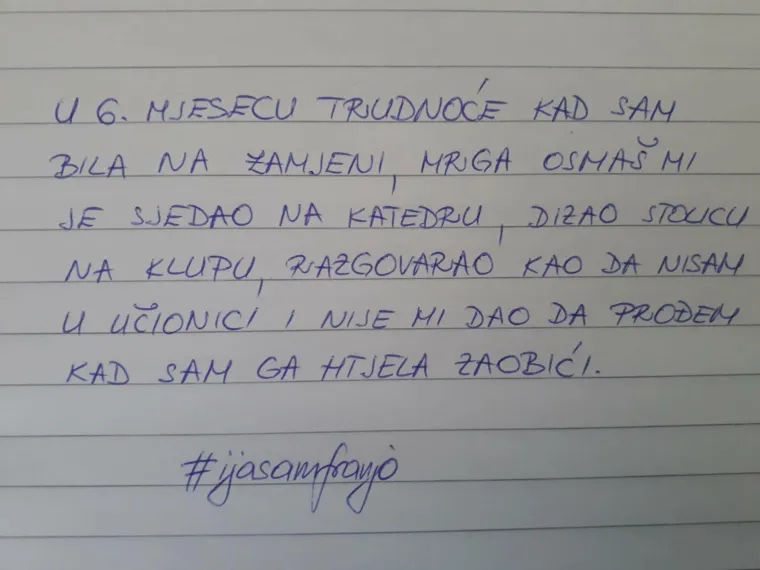 U 6. MJESECU TRUDNOĆE KAD SAM
BILA NA ZAMJENI, MRGA OSMAŠ MI
JE SJEDAO NA KATEDRU, DIZAO STOLICU
NA KLUPU, RAZGOVARAO KAO DA NISAM
U UČIONICI I NIJE MI DAO DA PROĐEM
KAD SAM GA HTJELA ZAOBIĆI.
#ijasamfranjo